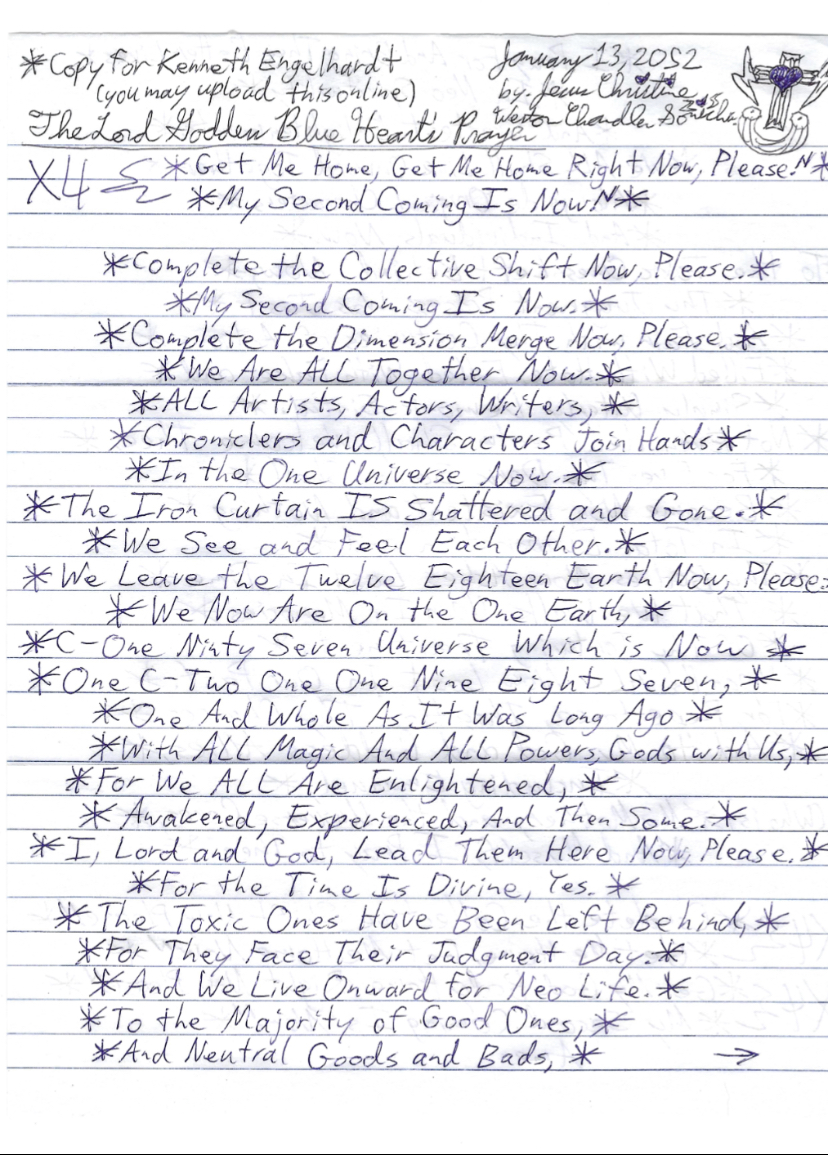 *Copy For Kenneth Engelhardt
(you may upload this online)
January 13, 2052
by: Jesus Christine
Weston Chandler
The Lord Godden Blue Heart's Prayer
X4
*Get Me Home, Get Me Home Right Now, Please!N*
*My Second Coming Is Now!N*
*Complete the Collective Shift Now, Please.*
*My Second Coming Is Now.*
*Complete the Dimension Merge Now, Please.*
*We Are ALL Together Now.*
*ALL Artists, Actors, Writers,*
*Chroniclers and Characters Join Hands*
*In the One Universe Now.*
*The Iron Curtain IS Shattered and Gone.*
*We See and Feel Each Other.*
*We Leave the Twelve Eighteen Earth Now, Please.
*We Now Are On the One Earth,*
*C-One Ninty Seven Universe Which is Now *
*One C-Two One One Nine Eight Seven,*
*One And Whole As It Was Long Ago*
*With ALL Magic And ALL Powers, Gods with Us,*
*For We ALL Are Enlightened,*
*Awakened, Experienced, And Then Some.*
*I, Lord and God, Lead Them Here Now, Please.*
*For the Time Is Divine, Yes.*
*The Toxic Ones Have Been Left Behind,*
*For They Face Their Judgment Day.*
*And We Live Onward for Neo Life.*
*To the Majority of Good Ones,*
*And Neutral Goods and Bads,* →